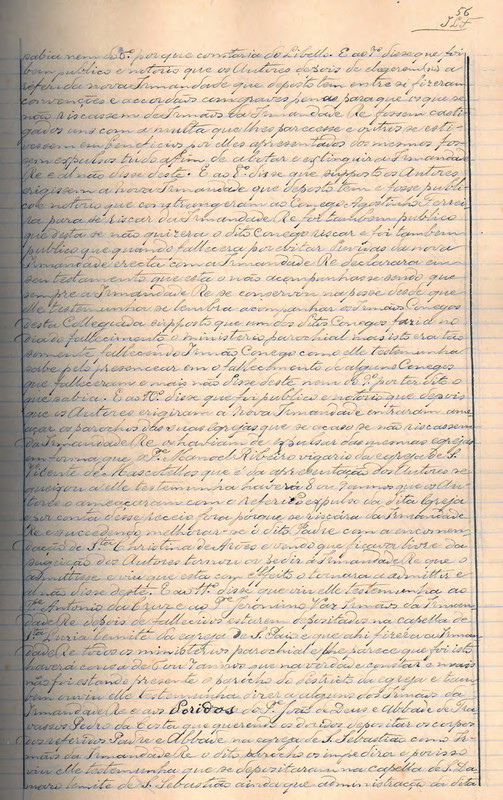 56
sabia nem do 6º porque constaria do Libello. E ao 7º disse que foi
bem publico e notorio que os Autores depois de elegerem a
referida nova Irmandade que deposto tem entre si fizeram
convenções e accordaos com graves penas para que os que se
não riscassem de Irmãos da Irmandade Re fossem casti-
gados uns com a multa que lhes parecesse e outros se esti-
vessem em beneficios por elles apresentados dos mesmos fos-
sem expulsos tudo afim de abater e extinguir a Irmandade
Re e al não disse deste. E ao 8º disse que supposto os Autores
erigissem a nova Irmandade que deposto tem e fosse publi-
co e notorio que constrangeram ao Conego Agostinho Ferrei-
ra para se riscar da Irmandade Re foi tambem publico
que desta se não quizera o dito Conego riscar e foi tambem
publico que quando fallecera por evitar duvidas da nova
Irmandade erecta com a Irmandade Re declarara em
seu testamento que esta o não acompanhasse sendo que
sempre a Irmandade Re se conservou na posse desde que
elle testemunha se lembra acompanhar os Irmãos Conegos
desta Collegiada supposto que um dos ditos Conegos fazia no
dia do fallecimento o ministerio parochial mas isto era tão
somente fallecendo Irmão Conego como elle testemunha
sabe pelo presencear em o fallecimento de alguns Conegos
que falleceram e mais não disse deste nem do 9º por ter dito o
que sabia. E ao 10º disse que foi publico e notorio que depois
que os Autores erigiram a nova Irmandade entraram a ame-
açar os parochos das suas egrejas que se acaso se não riscassem
da Irmandade Re os habiam de expulsar das mesmas egrejas
em forma que o Pe Manoel Ribeiro vigario da egreja de S.
Vicente de Mascotellos que é da apresentação dos Autores se
queixou a elle testemunha haverá 6 ou 7 annos que os Au-
tores o ameaçaram com o referido expulso da dita Egreja
e por conta d'esse receio fora porque se riscara da Irmandade
Re e succedendo melhorar-se o dito Padre com a encommen-
dação de Sta Christina de Arões e vendo que ficava livre da
sugeição dos Autores tornou a pedir á Irmandade Re que o
admittisse e viu que esta com effeito o tornara a admittir e
al não disse deste. E ao 11º disse que viu elle testemunha ao
Pe Antonio da Cruz e ao Pe Jeronimo Vaz Irmãos da Irman-
dade Re depois de fallecidos estarem depositados na capella de
Sta Luzia limite da egreja de S. Paio e que ahi fizera a Irman-
dade Re todos os ministerios parochial e lhe parece que foi isto
haverá cousa de 6 ou 7 annos que na verdade constar e mais
não foi estando presente o parocho do districto da egreja e tam-
bem ouviu elle testemunha dizer a alguns dos Irmãos da
Irmandade Re e aos Doridos do Pe João de Deus e Abbade de Tra-
vassos Pedro da Costa que querendo os doridos depositar os corpos
dos referidos Padre e Abbade na egreja de S. Sebastião como Ir-
mãos da Irmandade Re o dito parocho os impedira e por isso
viu elle testemunha que se depositaram na capella de S. Da-
maso limite de S. Sebastião ainda que administração da dita